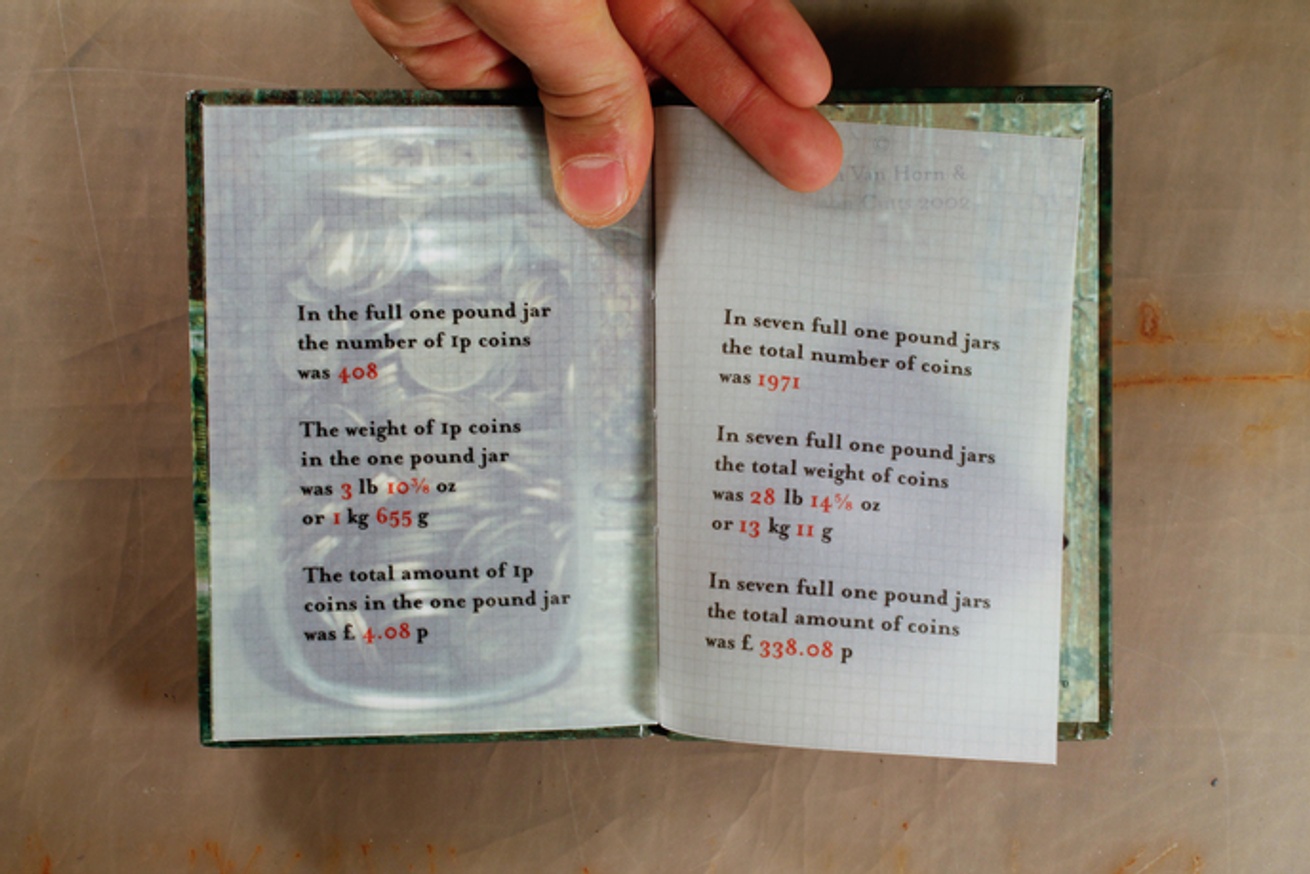 In the full one pound jar
the number of 1p coins
was 408
The weight of 1p coins
in the one pound jar
was 3 lb 10⅜ oz
or 1 kg 655 g
The total amount of 1p
coins in the one pound jar
was £ 4.08 p
Van Horn &
2002
In seven full one pound jars
the total number of coins
was 1971
In seven full one pound jars
the total weight of coins
was 28 lb 14⅝ oz
or 13 kg 11 g
In seven full one pound jars
the total amount of coins
was £ 338.08 p